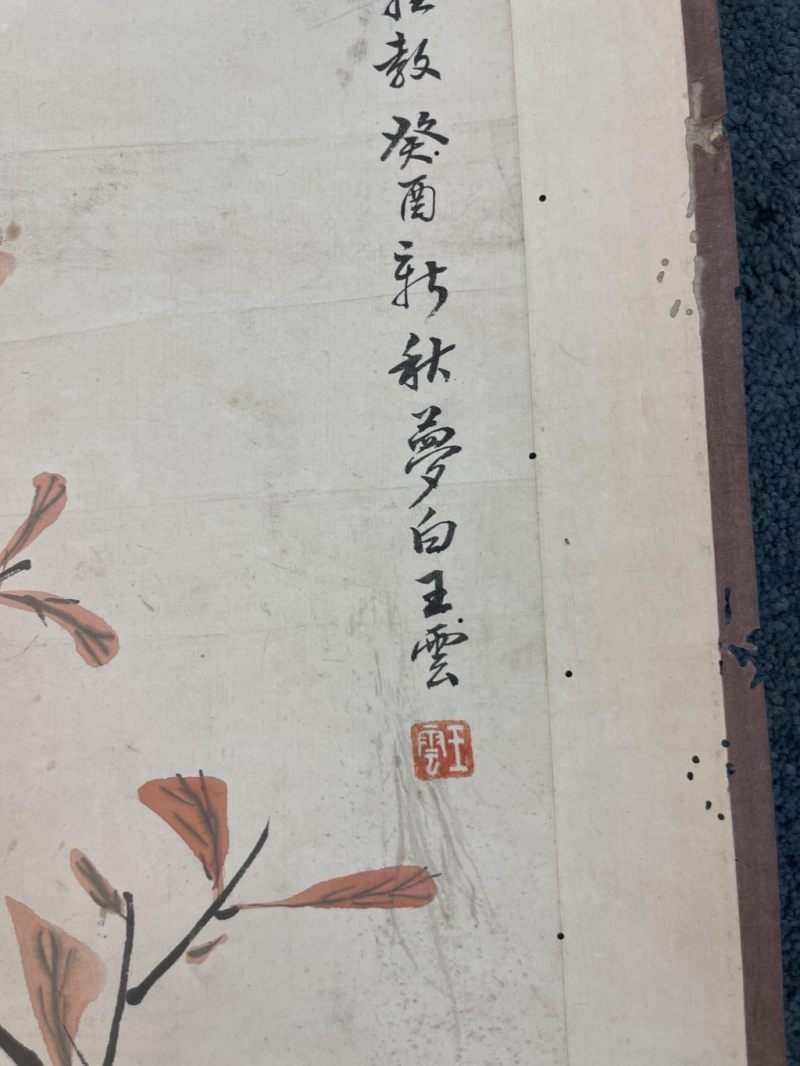 教癸酉新秋夢白王雲
王雲